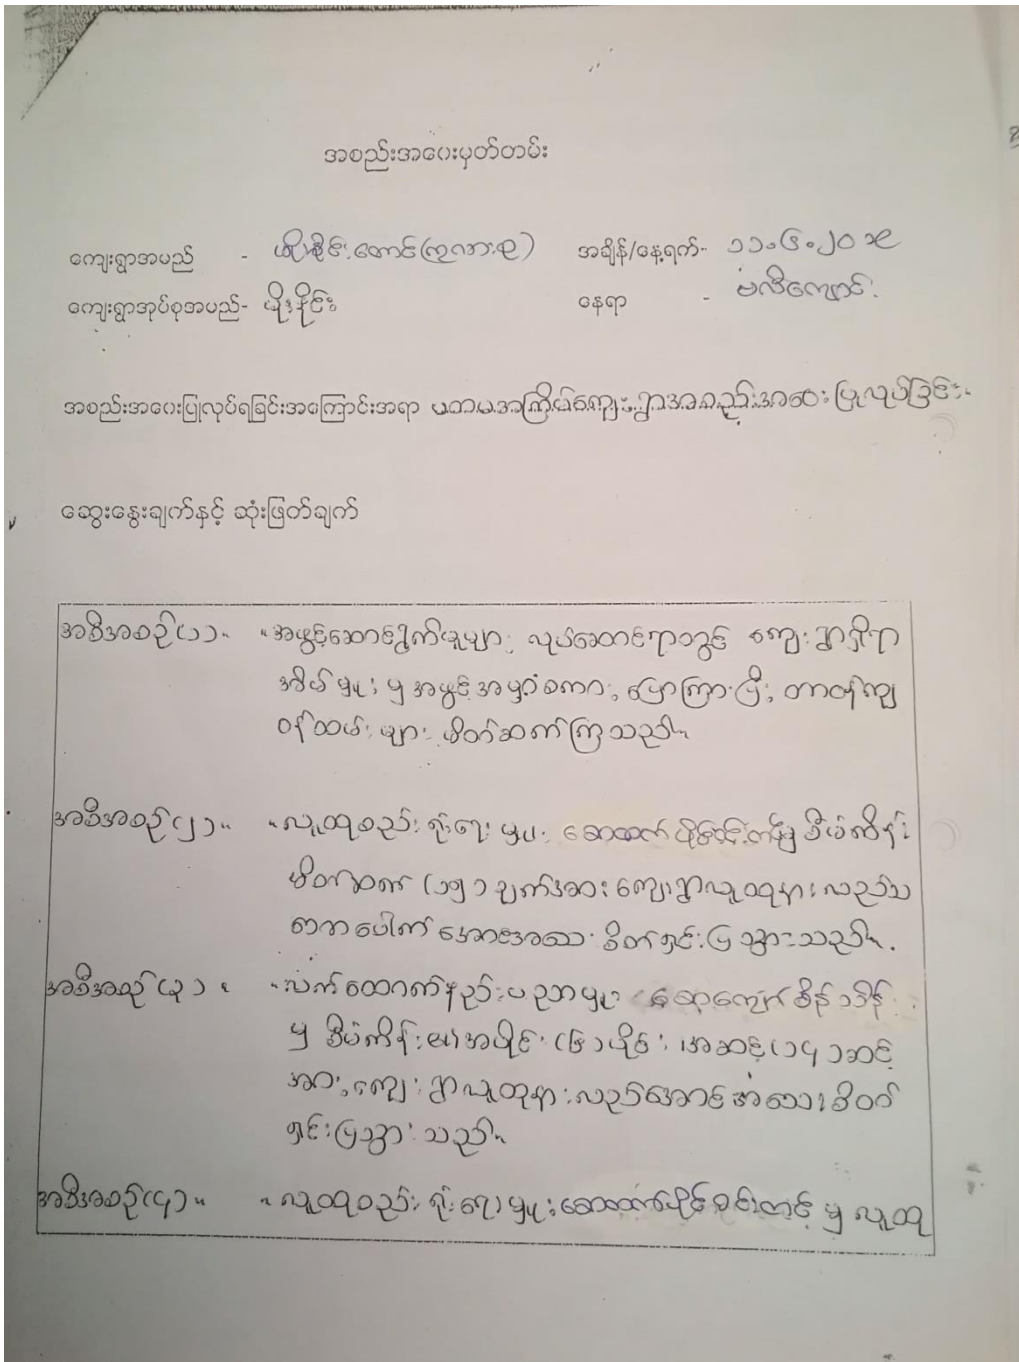 အစည်းအဝေးမှတ်တမ်း
ကျေးရွာအမည် - တောင် အချိန်/နေ့ရက်- ၁၁.၆.၂၀၁၉
ကျေးရွာအုပ်စုအမည်- မိုးနိုင်း နေရာ - ဗလီကျောင်း
အစည်းအဝေးပြုလုပ်ရခြင်းအကြောင်းအရာ ပထမအကြိမ်ကျေးရွာအစည်းအဝေးပြုလုပ်ခြင်း။
ဆွေးနွေးချက်နှင့် ဆုံးဖြတ်ချက်
အစီအစဉ်(၁)။ ။အဖွင့်ဆောင်ရွက်မှုများ လုပ်ဆောင်ရာတွင် ကျေးရွာရှိရာ
အိမ်မှူး မှ အဖွင့်အမှာစကား ပြောကြားပြီး တာဝန်ကျ
ဝန်ထမ်းများ မိတ်ဆက်ကြသည်။
အစီအစဉ်(၂)။ ။လူထုစည်းရုံးရေးမှူး မှ စီမံကိန်း
မိတ်ဆက် (၁၅)ချက်အား ကျေးရွာလူထုနားလည်သ
ဘောပေါက်အောင်အသေးစိတ်ရှင်းပြသွားသည်။
အစီအစဉ်(၃)။ ။လက်ထောက်နည်းပညာမှူး
မှ စီမံကိန်း၏အပိုင်း(၆)ပိုင်း၊ အဆင့်(၁၄)ဆင့်
အား ကျေးရွာလူထုနားလည်အောင် အသေးစိတ်
ရှင်းပြသွားသည်။
အစီအစဉ်(၄)။ ။လူထုစည်းရုံးရေးမှူး မှ လူထု